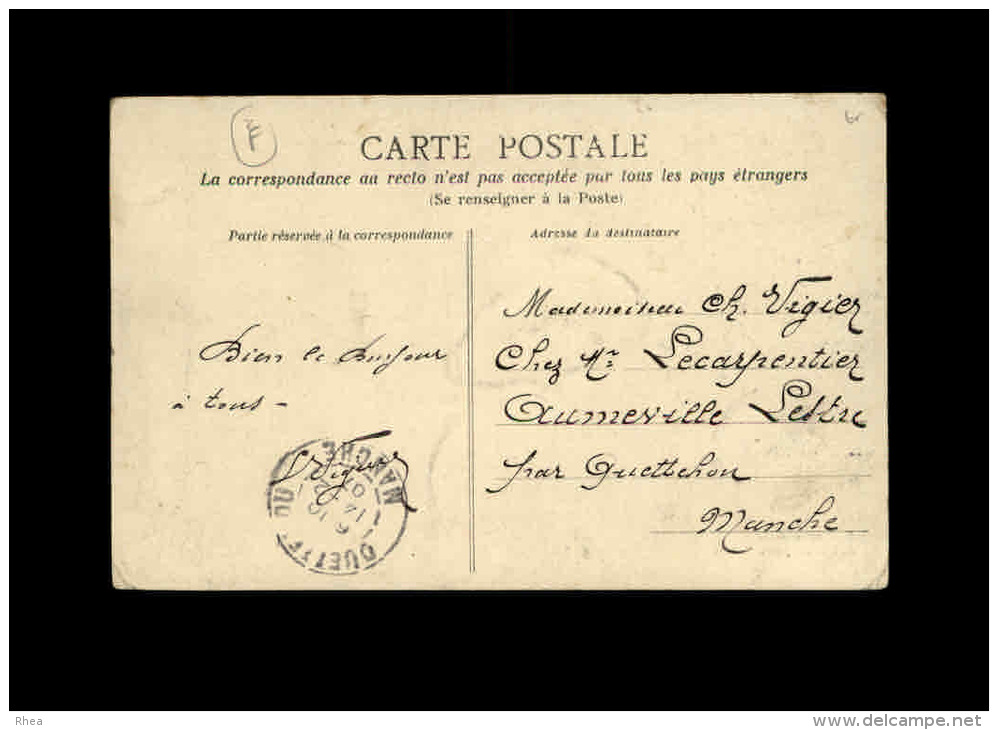 CARTE POSTALE
La correspondance au recto n'est pas acceptée par tous les pays étrangers
(Se renseigner à la Poste)
Partie réservée à la correspondance
Adresse du destinataire
Bien le Bonjour
à tous -
Mademoiselle Ch. Vigier
Chez Mr. Lecarpentier
Aumeville Lestre
par Quettehou
Manche
MANCHE
Rhea
delcampe.net